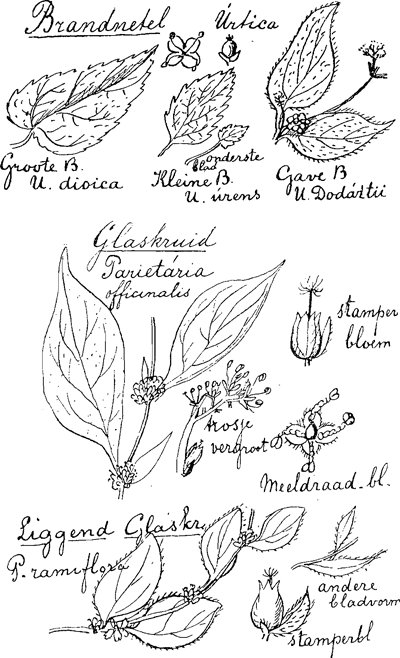 Brandnetel Úrtica
Groote B.
U. dioica
onderste
blad
Kleine B.
U. úrens
Gave B
U. Dodártii
Glaskruid
Parietária
officinalis
stamper
bloem
trosje
vergroot
Meeldraad-bl.
Liggend Glaskr.
P. ramiflora
andere
bladvorm
stamperbl